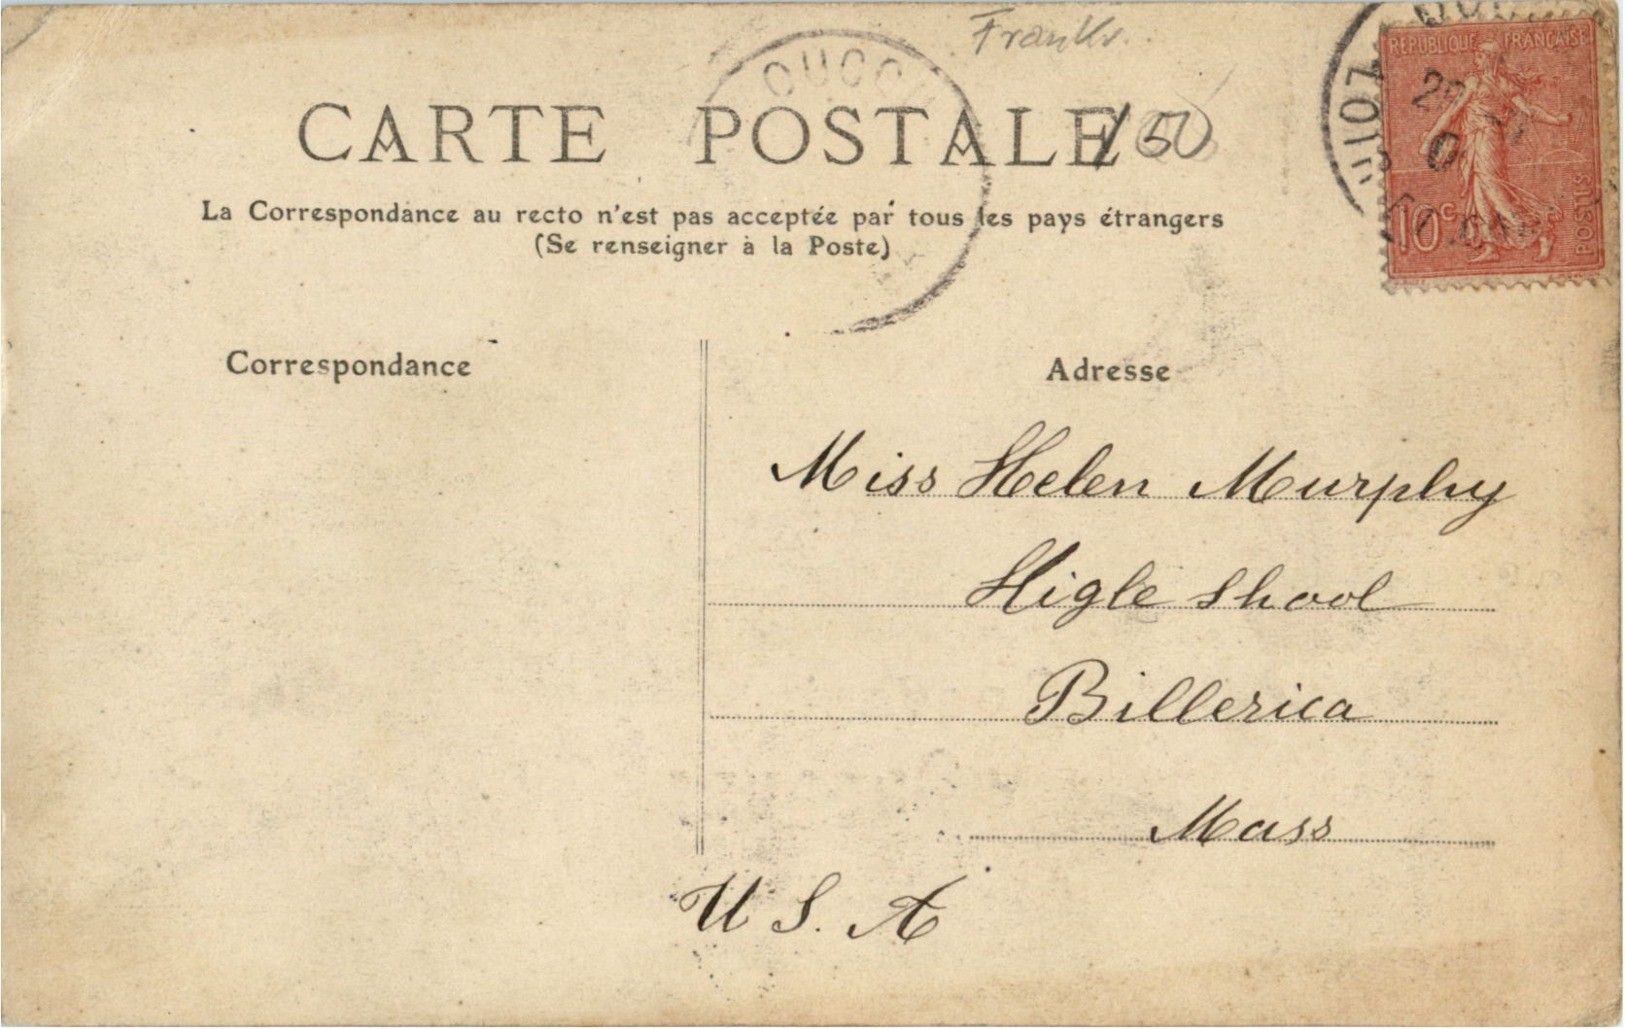 Frankr.
CARTE POSTALE
150
RÉPUBLIQUE FRANÇAISE
10 c
POSTES
La Correspondance au recto n'est pas acceptée par tous les pays étrangers
(Se renseigner à la Poste)
Correspondance
Adresse
Miss Helen Murphy
Higle Shool
Billerica
Mass
U S. A